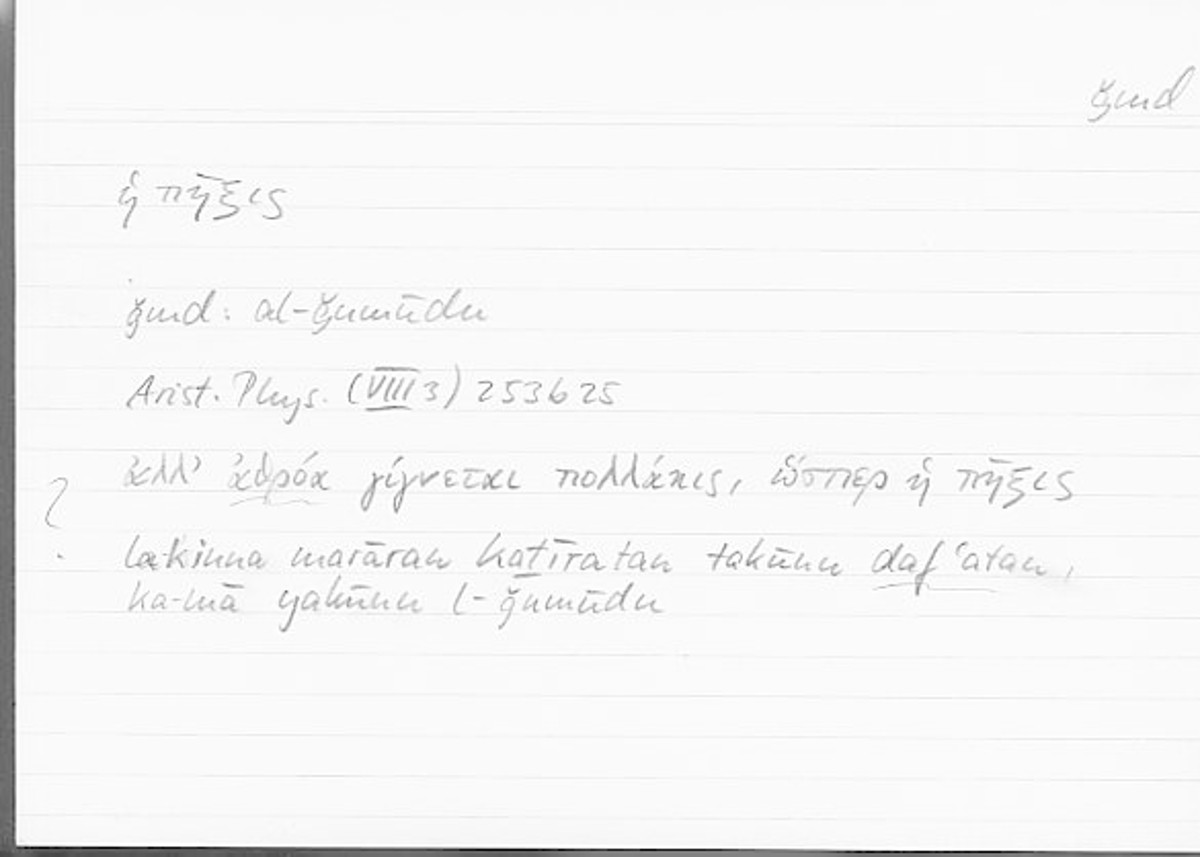 ǧmd
ἡ πῆξις
ǧmd: al-ǧumūdu
Arist. Phys. (VIII 3) 253b25
ἀλλ’ ἀθρόα γίγνεται πολλάκις, ὥσπερ ἡ πῆξις
?
lākinna marāran kaṯīratan takūnu daf‘atan,
ka-mā yakūnu l-ǧumūdu